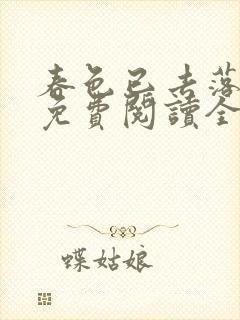 春色已去落
免費閱讀全
蝶姑娘